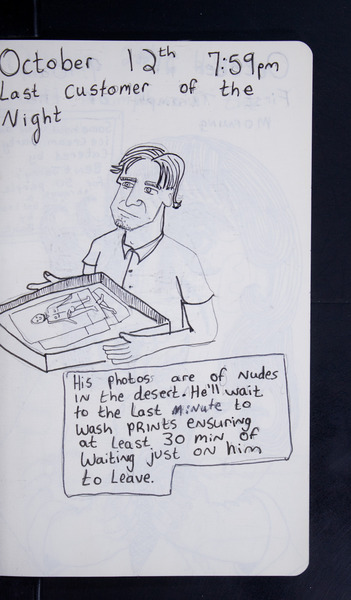 October 12th 7:59pm
Last customer of the
Night
His photos are of nudes
in the desert. He'll wait
to the last minute to
wash prints ensuring
at least 30 min of
waiting just on him
to leave.